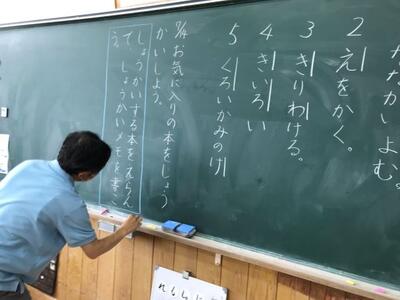 なかいよむ。
2 えをかく。
3 きりわける。
4 きいろい
5 くろいかみのけ
9/4 お気に入りの本をしょう
かいしよう。
しょうかいする本をえらん
で、しょうかいメモを書こ
う。